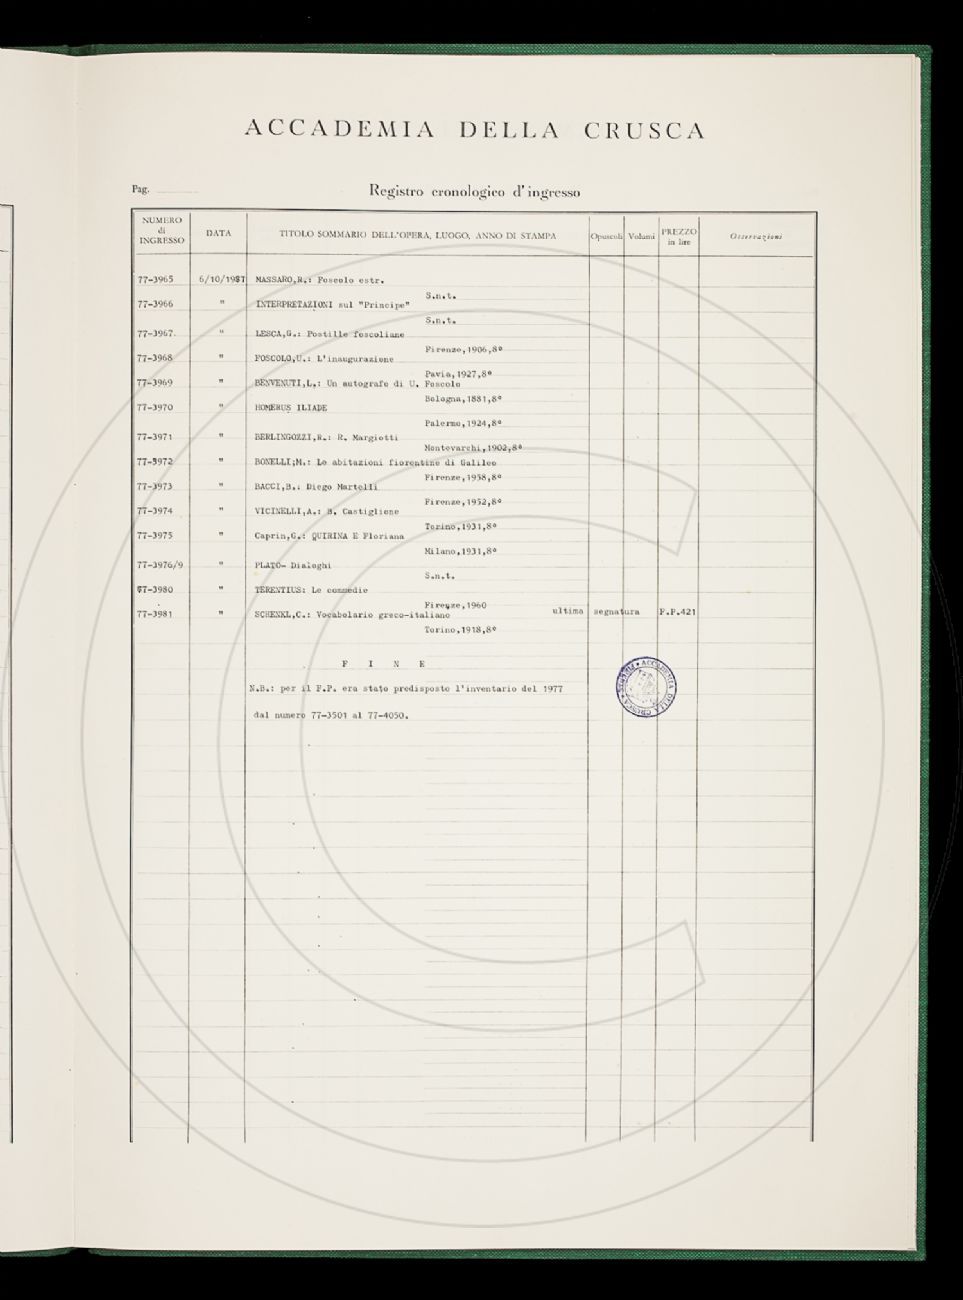 ACCADEMIA DELLA CRUSCA
Pag.
Registro cronologico d'ingresso
NUMERO di INGRESSO DATA TITOLO SOMMARIO DELL'OPERA, LUOGO, ANNO DI STAMPA Opuscoli Volumi PREZZO in lire Osservazioni
77-3965 6/10/1981 MASSARO,R.: Foscolo estr.
S.n.t.
77-3966 " INTERPRETAZIONI sul "Principe"
S.n.t.
77-3967 " LESCA,G.: Postille foscoliane
Firenze,1906,8°
77-3968 " FOSCOLO,U.: L'inaugurazione
Pavia,1927,8°
77-3969 " BENVENUTI,L.: Un autografo di U. Foscolo
Bologna,1881,8°
77-3970 " HOMERUS ILIADE
Palermo,1924,8°
77-3971 " BERLINGOZZI,R.: R. Margiotti
Montevarchi,1902,8°
77-3972 " BONELLI;M.: Le abitazioni fiorentine di Galileo
Firenze,1958,8°
77-3973 " BACCI,B.: Diego Martelli
Firenze,1952,8°
77-3974 " VICINELLI,A.: B. Castiglione
Torino,1931,8°
77-3975 " Caprin,G.: QUIRINA E Floriana
Milano,1931,8°
77-3976/9 " PLATO- Dialoghi
S.n.t.
77-3980 " TERENTIUS: Le commedie
Firenze,1960
77-3981 " SCHENKL,C.: Vocabolario greco-italiano ultima segnatura F.P.421
Torino,1918,8°
F I N E
N.B.: per il F.P. era stato predisposto l'inventario del 1977
dal numero 77-3501 al 77-4050.
ACCADEMIA DELLA CRUSCA * FIRENZE *